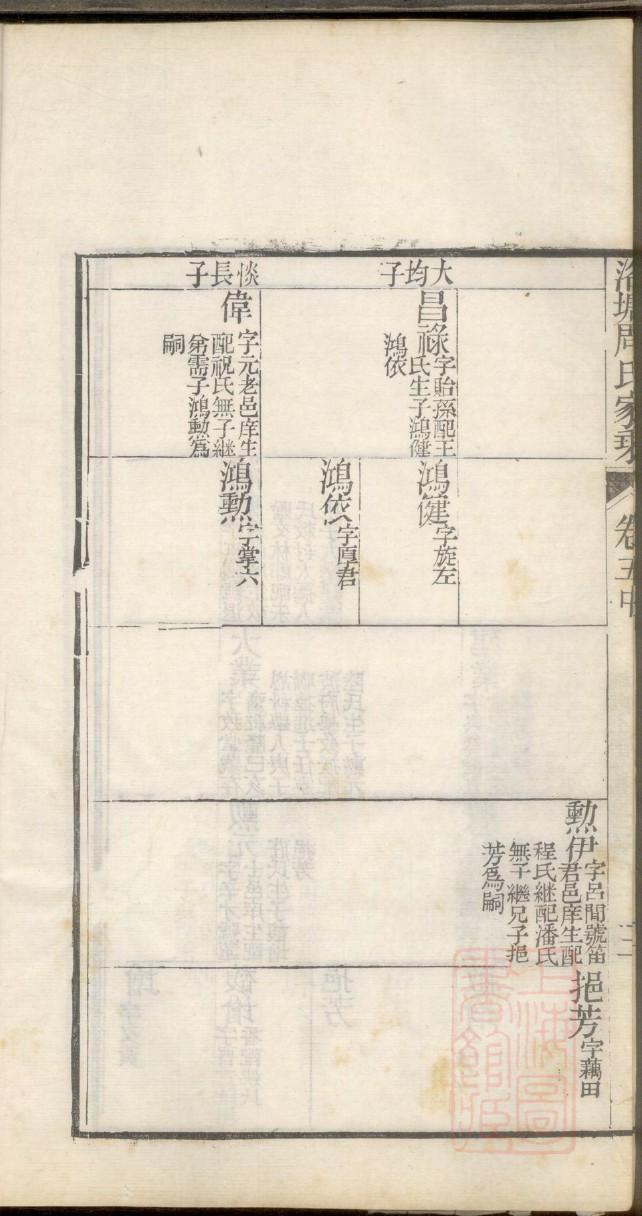 洛塘周氏家乘
卷五中
三
勲伊
字呂間號笛
君邑庠生配
程氏継配潘氏
無子繼兄子挹
芳爲嗣
挹芳
字藕田
大均子
昌祿
字貽孫配王
氏生子鴻健
鴻依
鴻健
字旋左
鴻依
字厚君
惔長子
偉
字元老邑庠生
配祝氏無子継
弟需子鴻勲爲
嗣
鴻勲
字掌六
上海圖書館藏